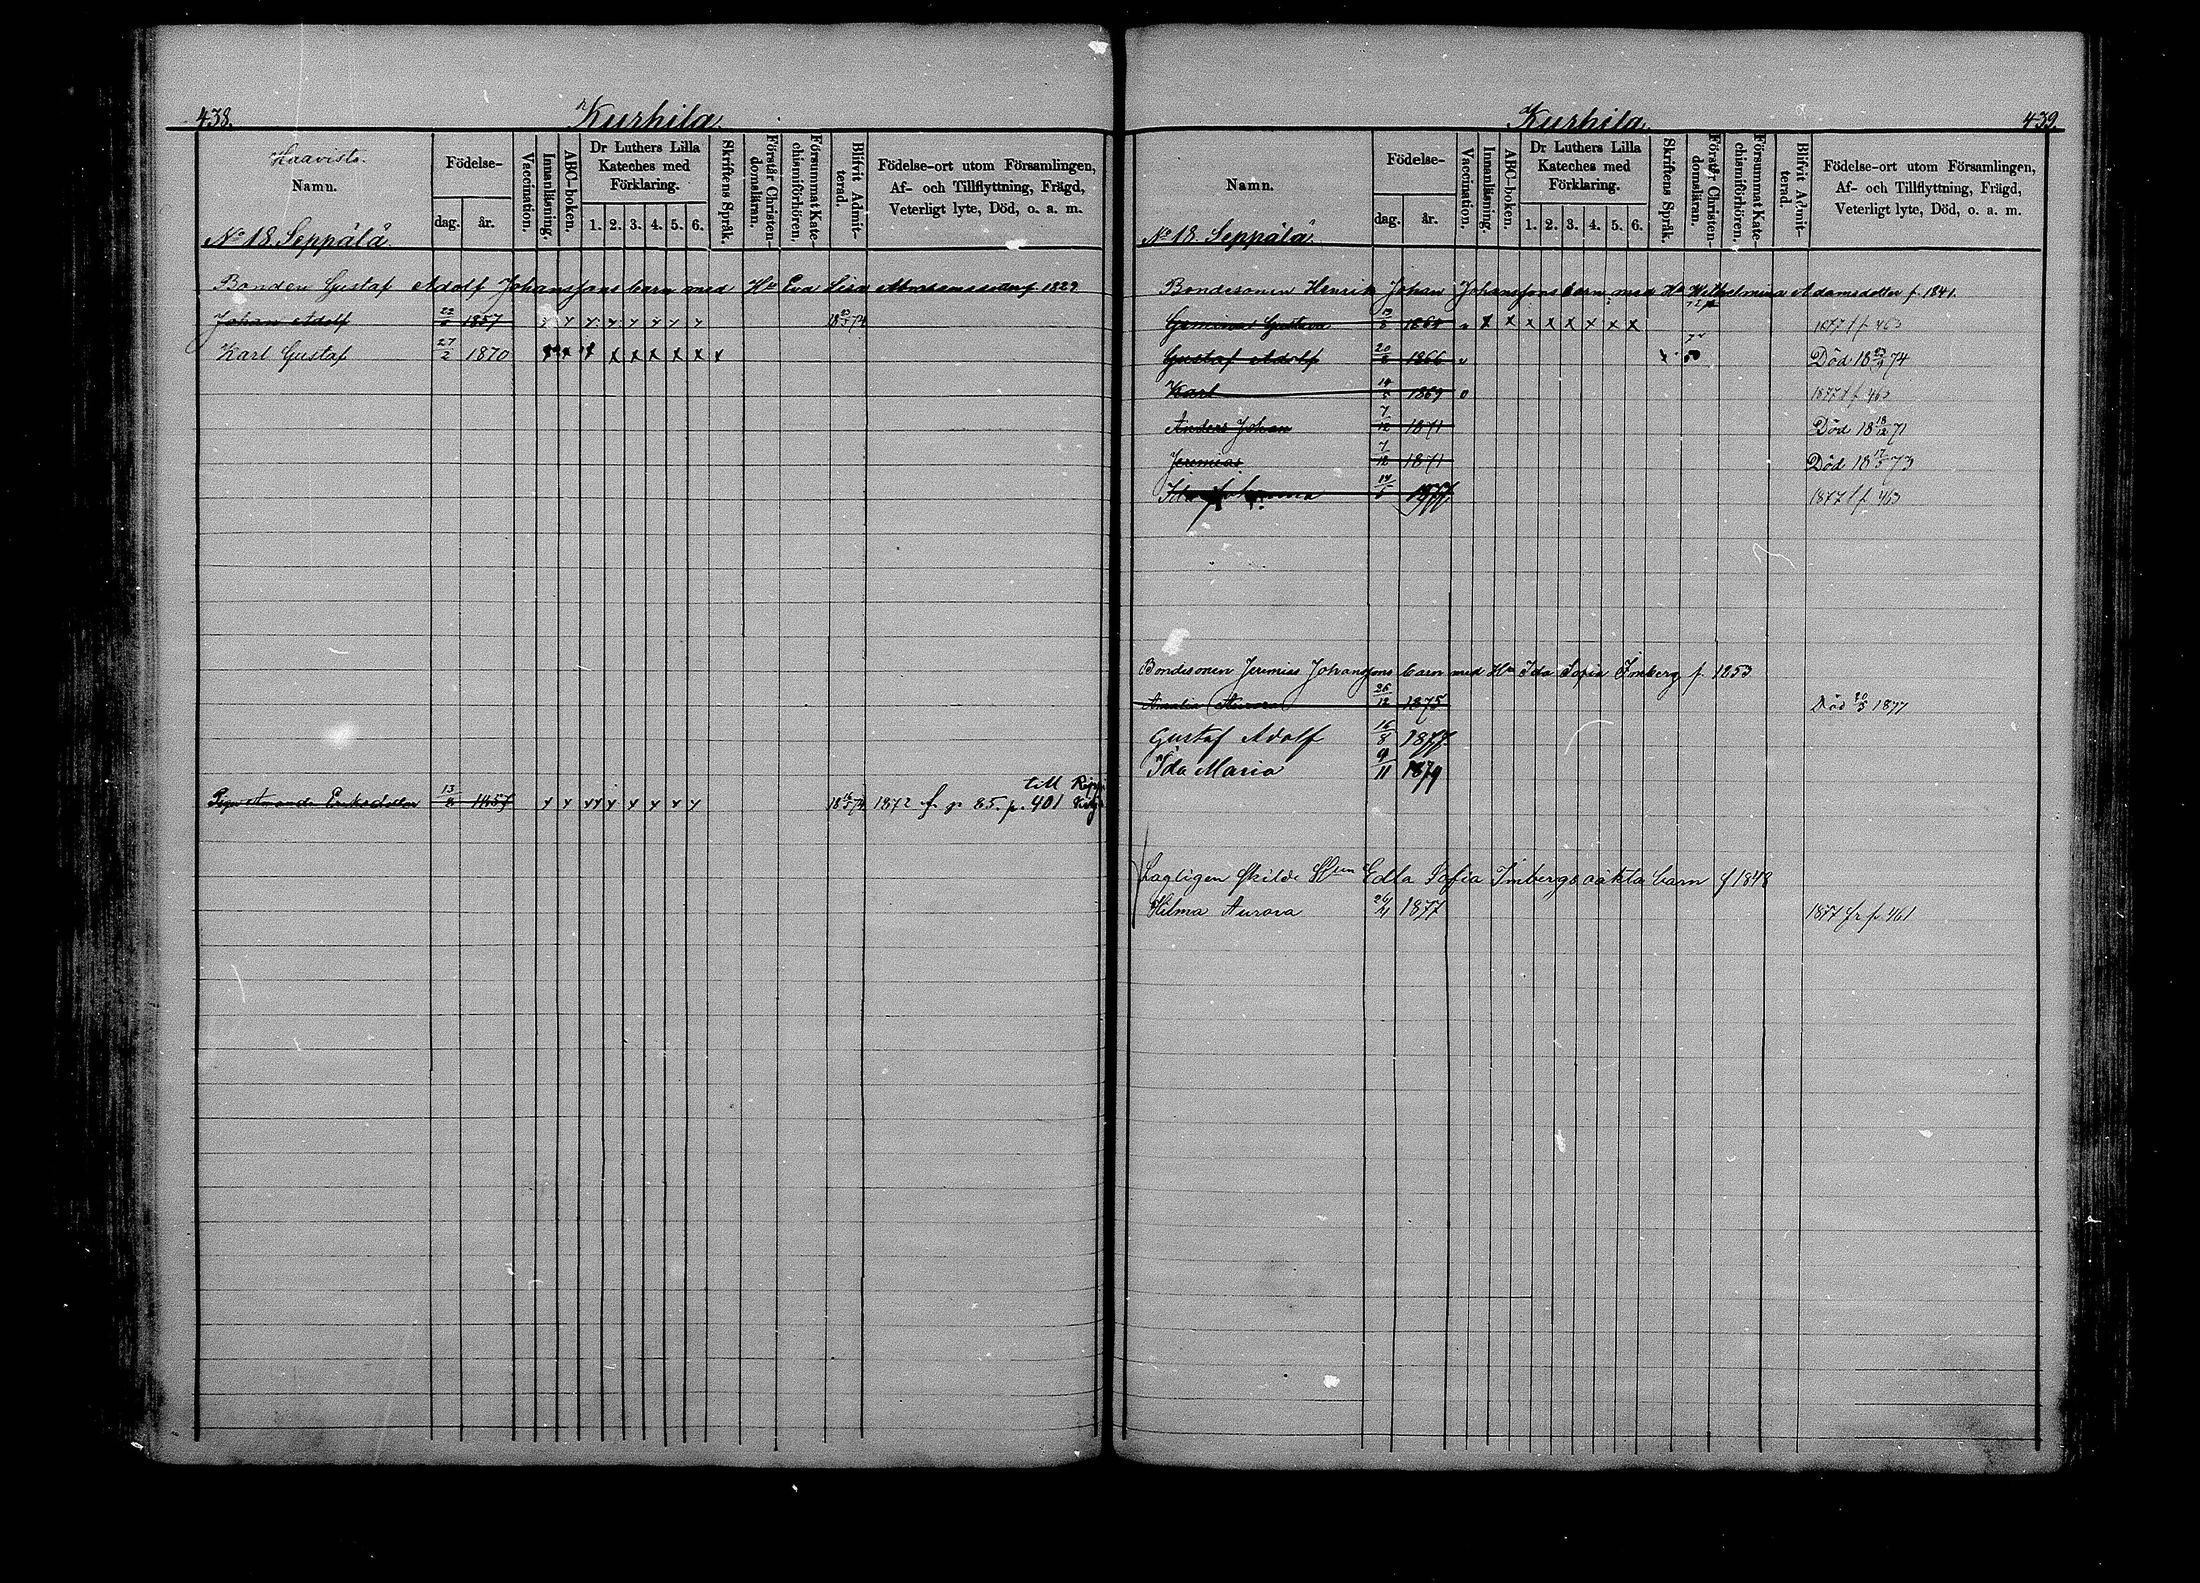 438.
Kurhila.
Haavisto.
Namn.
Födelse-
dag. år.
Vaccination.
Innanläsning.
ABC-boken.
Dr Luthers Lilla Kateches med Förklaring.
1. 2. 3. 4. 5. 6.
Skriftens Språk.
Förstår Christendomsläran.
Försummat Katechismiförhören.
Blifvit Admitterad.
Födelse-ort utom Församlingen,
Af- och Tillflyttning, Frägd,
Veterligt lyte, Död, o. a. m.
No 18 Seppälä
Bonden Gustaf Adolf Johanssons barn med Hu Eva Lisa 1829
Johan Adolf 1857 x x x x x x x x
Karl Gustaf 27/2 1870 x x x x x x x x
till
Amanda Eriksdotter 13/8 1857 x x x x x x x x 1872 f. p 85. p. 401
Kurhila.
439.
Namn.
Födelse-
dag. år.
Vaccination.
Innanläsning.
ABC-boken.
Dr Luthers Lilla Kateches med Förklaring.
1. 2. 3. 4. 5. 6.
Skriftens Språk.
Förstår Christendomsläran.
Försummat Katechismiförhören.
Blifvit Admitterad.
Födelse-ort utom Församlingen,
Af- och Tillflyttning, Frägd,
Veterligt lyte, Död, o. a. m.
No 18 Seppälä
Bondesonen Henrik Johan Johanssons barn med Hu Wilhelmina Adamsdotter f. 1841.
Gustava 1864 x x x x x x x x 1877 t p 463
Gustaf Adolf 1866 Död 18 74
Karl 1869 1877 t p 463
Anders Johan 7/12 1871 Död 18 18/12 71
Jeremias 7/12 1871 Död 18 73
Ida Johanna 1877 t p 463
Bondesonen Jeremias Johanssons barn med Hu Ida Sofia Imberg f. 1853
Amalia Aurora 26/12 1875 Död 1877
Gustaf Adolf 16/8 1877
Ida Maria 9/11 1879
Lagligen skilde Edla Sofia Imbergs oäkta barn f 1848
Hilma Aurora 1877 1877 fr p. 461